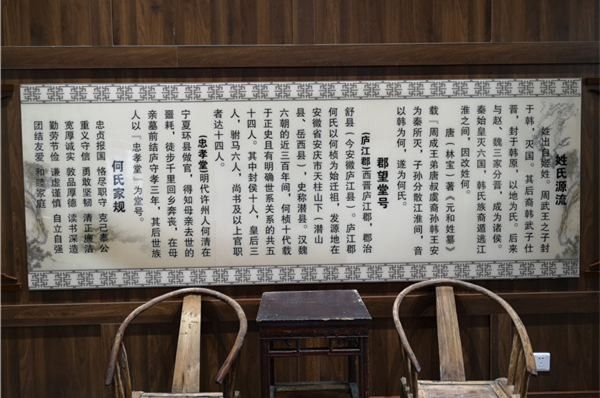 姓氏源流
姓出自姬姓。周武王之子封
于韩，灭国，其后裔韩武子仕
晋，封于韩原，以地为氏。后来
与赵、魏三家分晋，成为诸侯。
秦始皇灭六国，韩氏族裔遁逃江
淮之间，因故姓何。
唐（林宝）著《元和姓纂》
载『周成王弟唐叔虞裔孙韩王安
为秦所灭，子孙分散江淮间，音
以韩为何，遂为何氏。
郡望堂号
(庐江郡)西晋庐江郡，郡治
舒县（今安徽庐江县）。庐江郡
何氏以何桢为始迁祖，发源地在
安徽省安庆市天柱山下（潜山
县、岳西县），史称潜县。汉魏
六朝的近三百年间，何桢十代载
于正史且有明确世系关系的共五
十四人。其中封侯十人，皇后三
人，驸马六人，尚书及以上官职
者达十四人。
(忠孝堂)明代许州人何清在
宁夏环县做官，得知母亲去世的
噩耗，徒步千里回乡奔丧，在母
亲墓前结庐守孝三年，其后世族
人以『忠孝堂』为堂号。
何氏家规
忠贞报国 恪尽职守 克己奉公
重义守信 勇敢坚韧 清正廉洁
宽厚诚实 敦品厚德 读书深造
勤劳节俭 谦虚谨慎 自立自强
团结友爱 和睦家庭